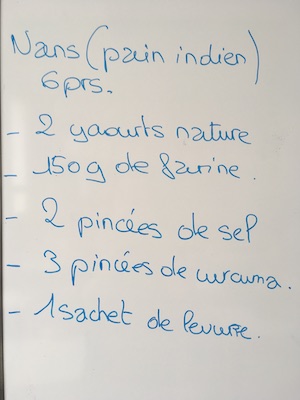 Nans (pain indien)
6 prs.
- 2 yaourts nature
- 150g de farine.
- 2 pincées de sel
- 3 pincées de curcuma.
- 1 sachet de levure.